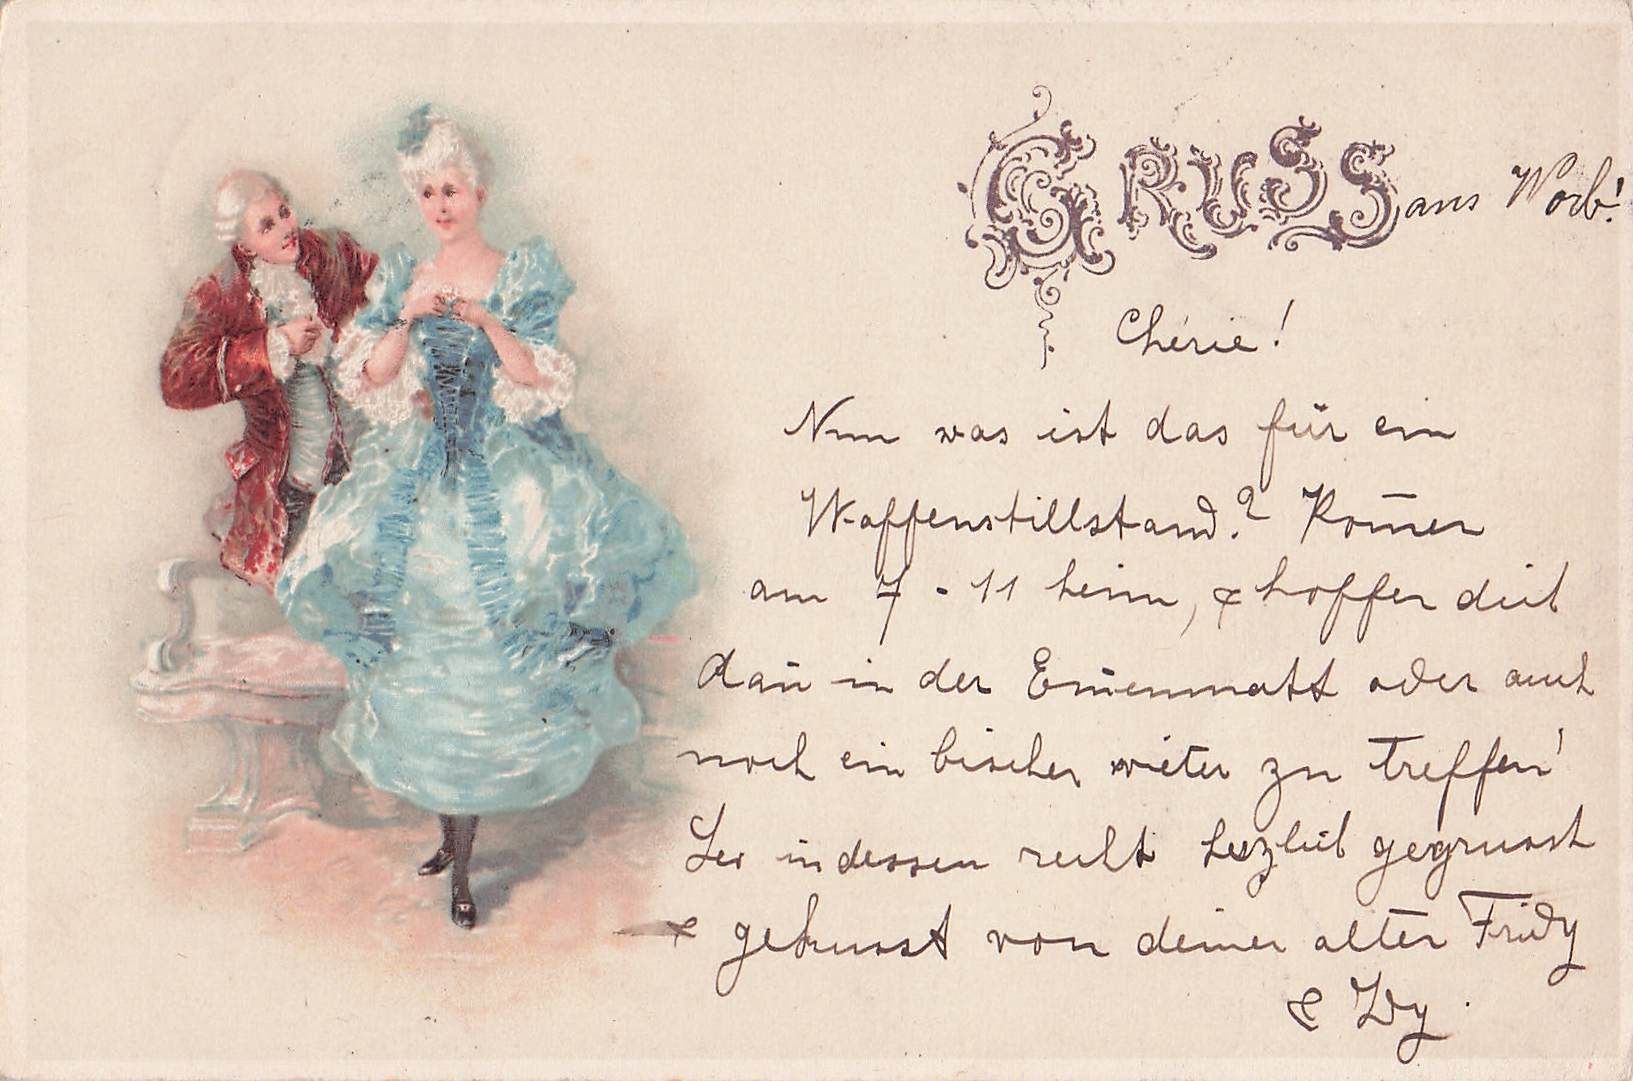 GRUSS aus Worb!
Chérie!
Nun was ist das für ein
Waffenstillstand? Kom̄en
am 7-11 heim, & hoffen dich
dan̄ in der Em̄enmatt oder auch
noch ein bischen weiter zu treffen!
Sei indessen recht herzlich gegrüsst
& geküsst von deiner alten Fridy
& Idy.